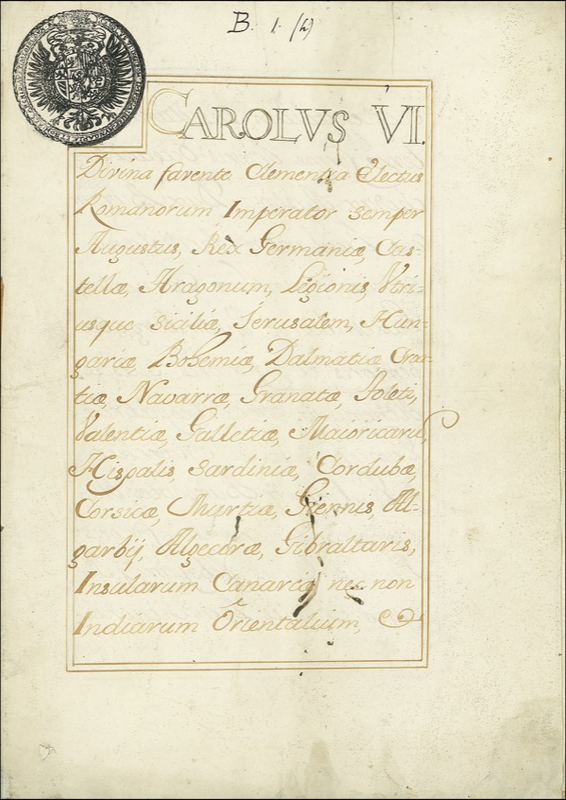 B. 1. (h)
CAROLVS VI.
Divina favente Clementia Electus
Romanorum Imperator semper
Augustus, Rex Germaniæ, Cas-
tellæ, Aragonum, Legionis, Vtri-
usque Siciliæ, Jerusalem, Hun-
gariæ, Bohemiæ, Dalmatiæ Croa-
tiæ, Navarræ, Granatæ, Toleti,
Valentiæ, Galletiæ, Maioricarū,
Hispalis, Sardiniæ, Cordubæ,
Corsicæ, Murtiæ, Giennis, Al-
garbij, Algeciræ, Gibraltaris,
Insularum Canareæ, nec non
Indiarum Orientalium,